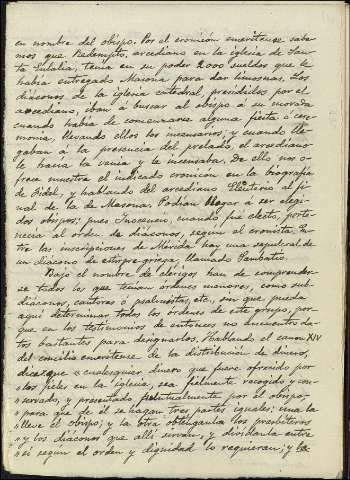 en nombre del obispo. Por el cronicón emeritense sabe-
mos que Redempto, arcediano en la iglesia de San-
ta Eulalia, tenia en su poder 2.000 sueldos que le
habia entregado Masona para dar limosnas. Los
diáconos de la iglesia catedral, presididos por el
arcediano, iban á buscar al obispo á su morada
cuando habia de comenzarse alguna fiesta ó cere-
monia, llevando ellos los incensarios; y cuando lle-
gaban á la presencia del prelado, el arcediano
le hacia la venia y le incensaba. De ello nos o-
frece muestra el indicado cronicón en la biografia
de Fidel, y hablando del arcediano Eleuterio al fi-
nal de la de Masona. Podian llegar á ser elegi-
dos obispos; pues Inocencio, cuando fué electo, perte-
necia al orden de diáconos, segun el cronista. En-
tre las inscripciones de Mérida hay una sepulcral de
un diácono de estirpe griega, llamado Sambatio.
Bajo el nombre de clérigos han de comprender-
se todos los que tenian ordenes menores, como sub-
diáconos, cantores ó psalmistas, etc., sin que pueda
aqui determinar todos los órdenes de este grupo, por-
que en los testimonios de entonces no encuentro da-
tos bastantes para designarlos. Hablando el canon XIV
del concilio emeritense de la distribución de dinero,
dice que "cualesquier dinero que fuere ofrecido por
"los fieles en la iglesia, sea fielmente recogido y con-
"servado, y presentado puntualmente por el obispo;
"para que de él se hagan tres partes iguales: una la
"lleve el obispo; y la otra obtenganla los presbiteros
"y los diáconos que alli sirvan, y dividanla entre
"si segun el orden y dignidad lo requieran; y la